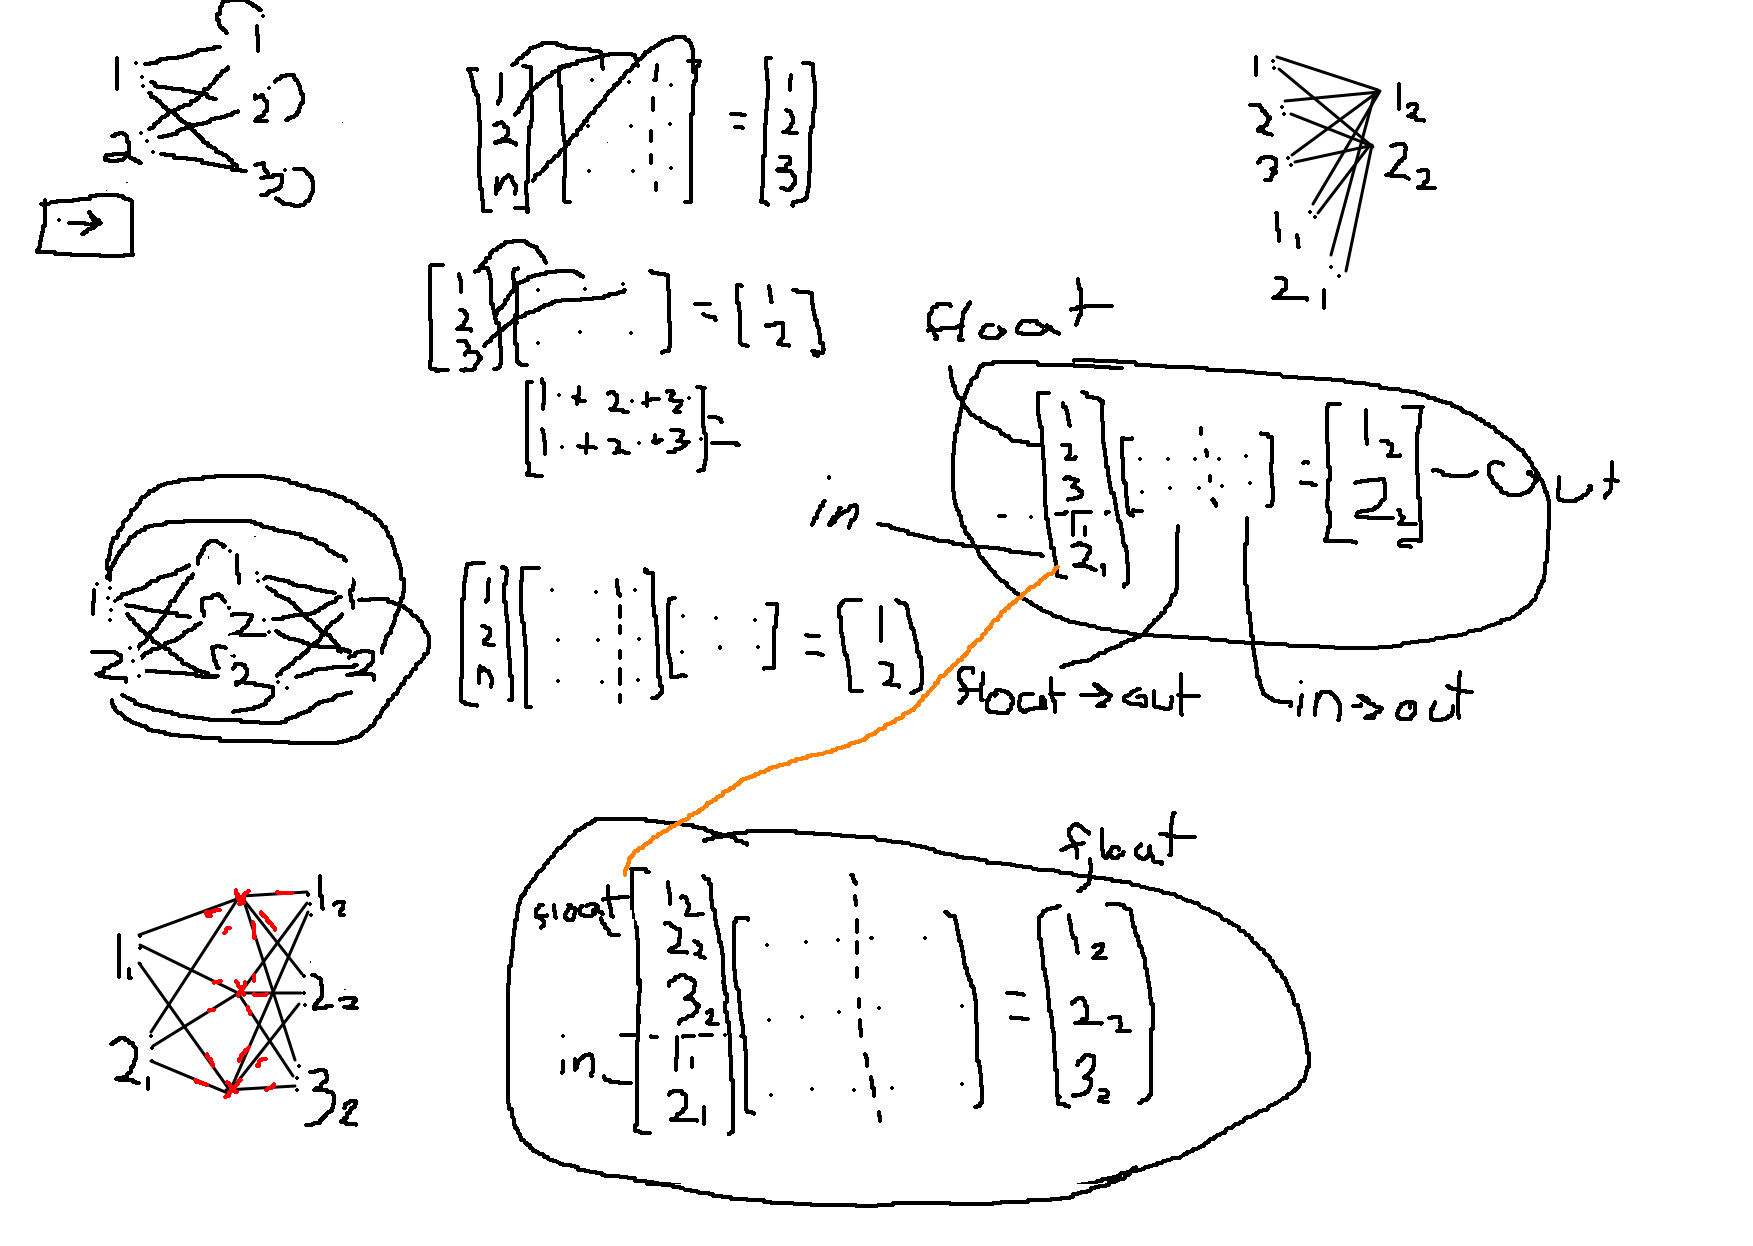 1 1
2 2
3
→
[1 2 n] [ ] = [1 2 3]
[1 2 3] [ ] = [1 2]
[1· + 2· + 3·
1· + 2· + 3·] =
1 1₂
2 2₂
3
1₁
2₁
float
[1 2 3 1₁ 2₁] [ ] = [1₂ 2₂] - out
in
float → out in → out
1 1 1
2 2 2
3
[1 2 n] [ ] [ ] = [1 2]
1₁ 1₂
2₂
2₁ 3₂
float
float [1₂ 2₂ 3₂ 1₁ 2₁] [ ] = [1₂ 2₂ 3₂]
in